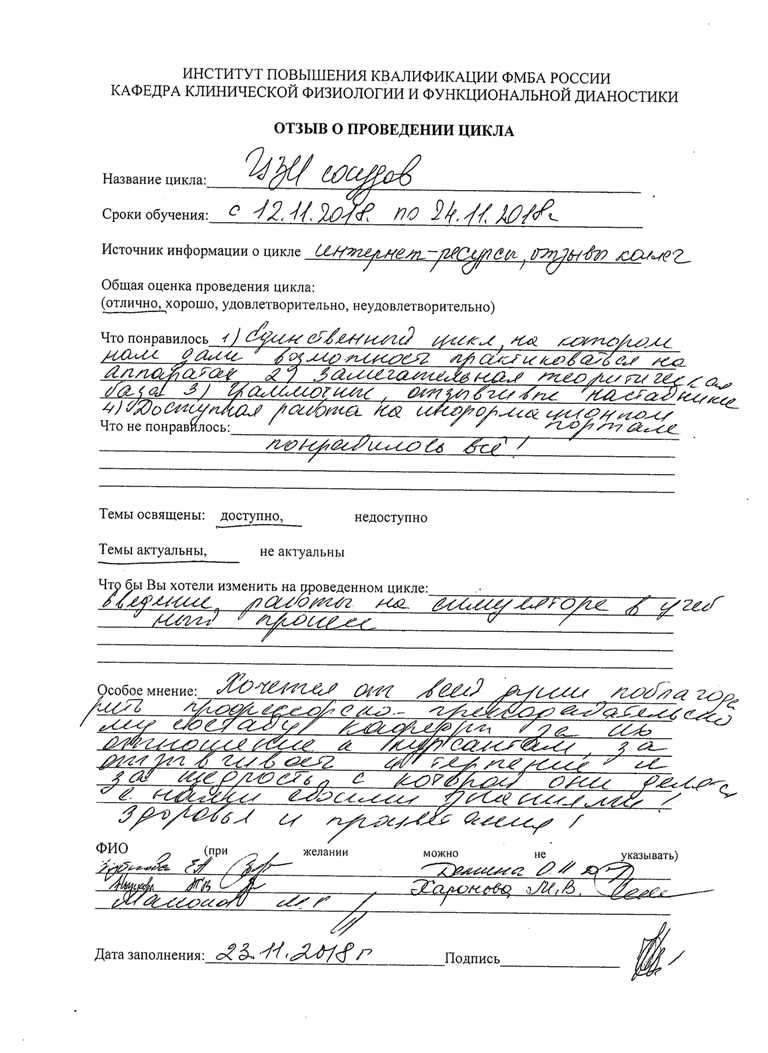 ИНСТИТУТ ПОВЫШЕНИЯ КВАЛИФИКАЦИИ ФМБА РОССИИ
КАФЕДРА КЛИНИЧЕСКОЙ ФИЗИОЛОГИИ И ФУНКЦИОНАЛЬНОЙ ДИАНОСТИКИ
ОТЗЫВ О ПРОВЕДЕНИИ ЦИКЛА
Название цикла: УЗИ сосудов
Сроки обучения: с 12.11.2018г. по 24.11.2018г.
Источник информации о цикле интернет-ресурсы, отзывы коллег
Общая оценка проведения цикла:
(отлично, хорошо, удовлетворительно, неудовлетворительно)
Что понравилось 1) Единственный цикл, на котором
нам дали возможность практиковаться на
аппаратах 2) Замечательная теоритическая
база 3) Грамотные, отзывчивые наставники
4) Доступная работа на информационном
Что не понравилось: портале
понравилось всё!
Темы освящены: доступно, недоступно
Темы актуальны, не актуальны
Что бы Вы хотели изменить на проведенном цикле:
введение, работы на симуляторе в учеб
ный процесс
Особое мнение: Хочется от всей души поблагода
рить профессорско-преподавательско
му составу кафедры за их
отношение к курсантам, за
отзывчивость и терпение и
за щедрость с которой они делятся
с нами своими знаниями!
Здоровья и процветания!
ФИО (при желании можно не указывать)
ЕА Демина О.Н.
Харонова М.В.
Дата заполнения: 23.11.2018г Подпись